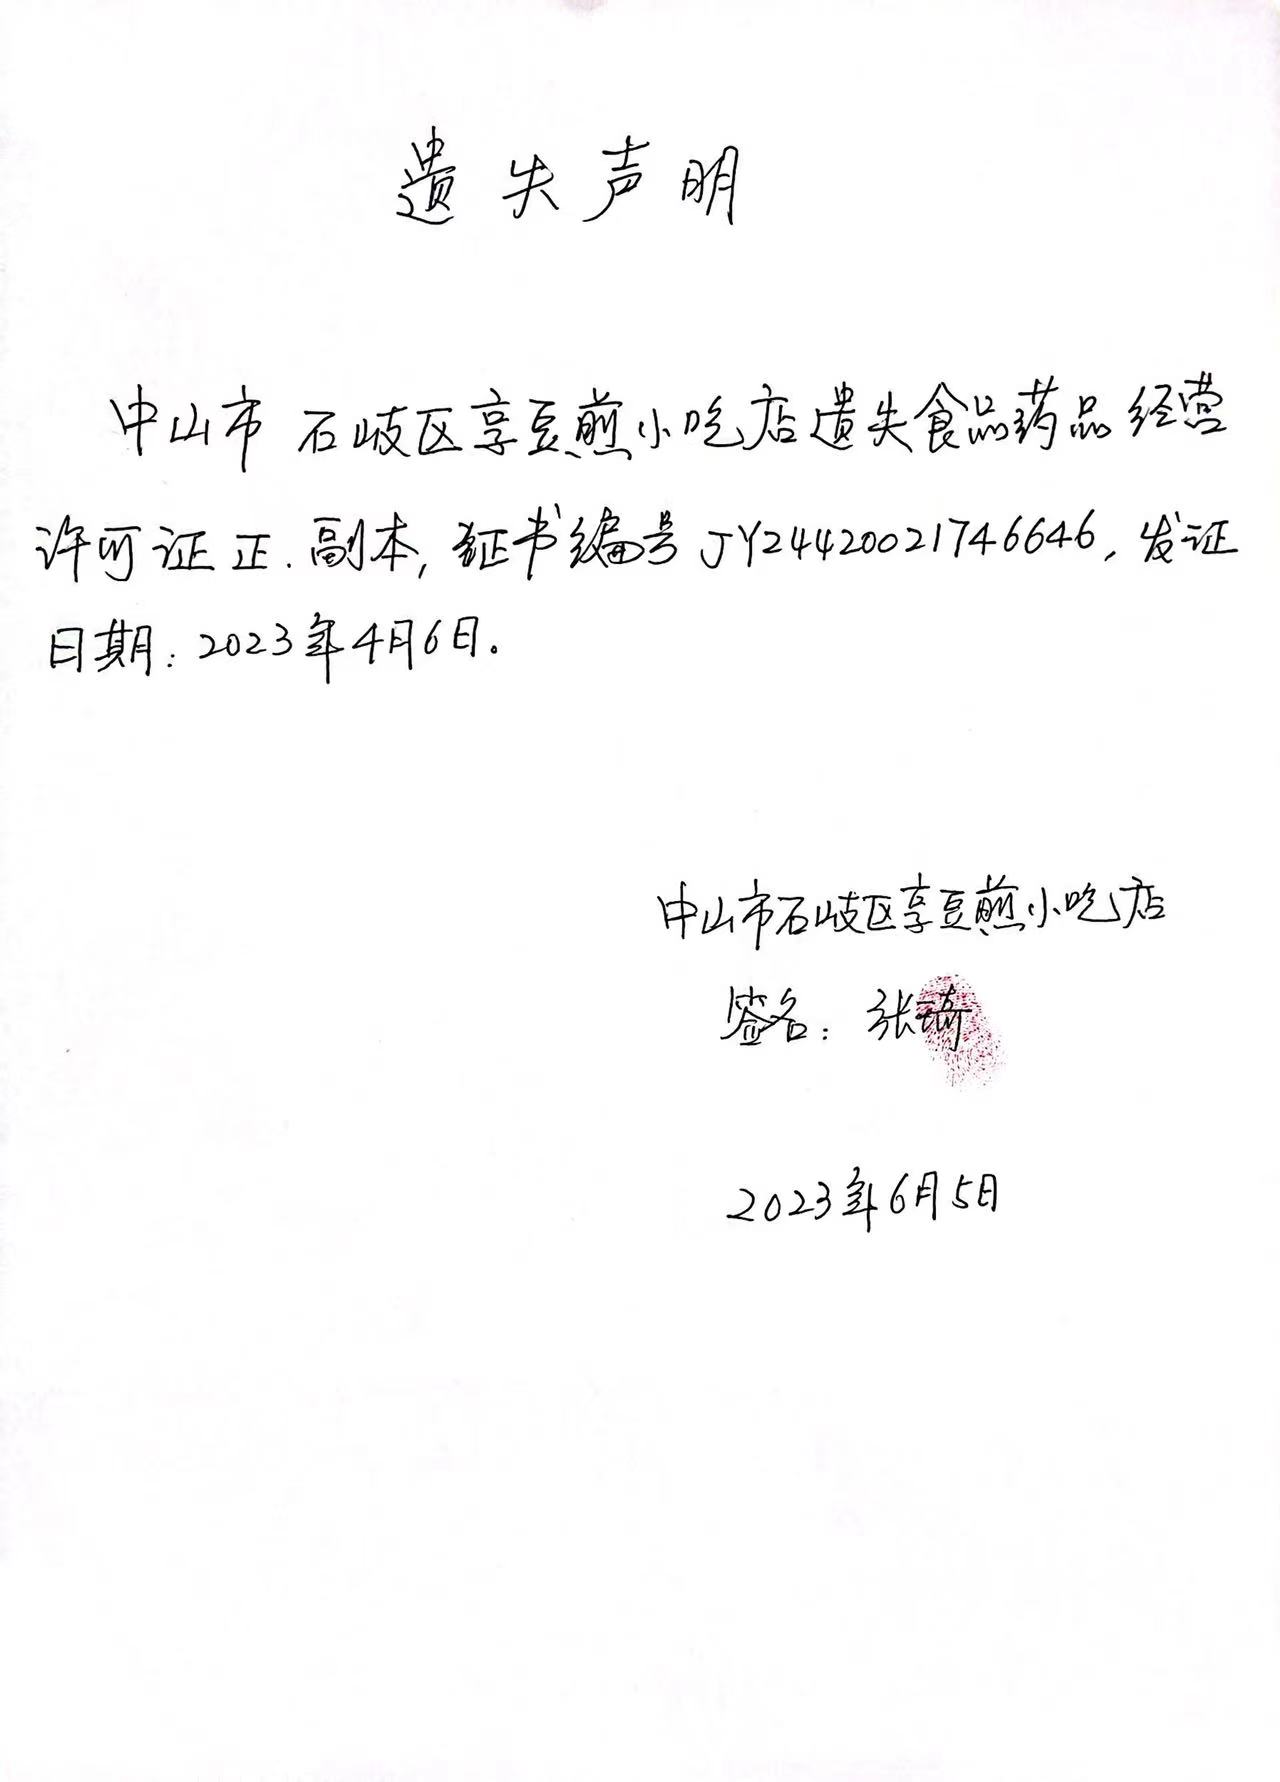 遗失声明
中山市石岐区享豆煎小吃店遗失食品药品经营
许可证正.副本,证书编号JY24420021746646,发证
日期:2023年4月6日。
中山市石岐区享豆煎小吃店
签名:张琦
2023年6月5日